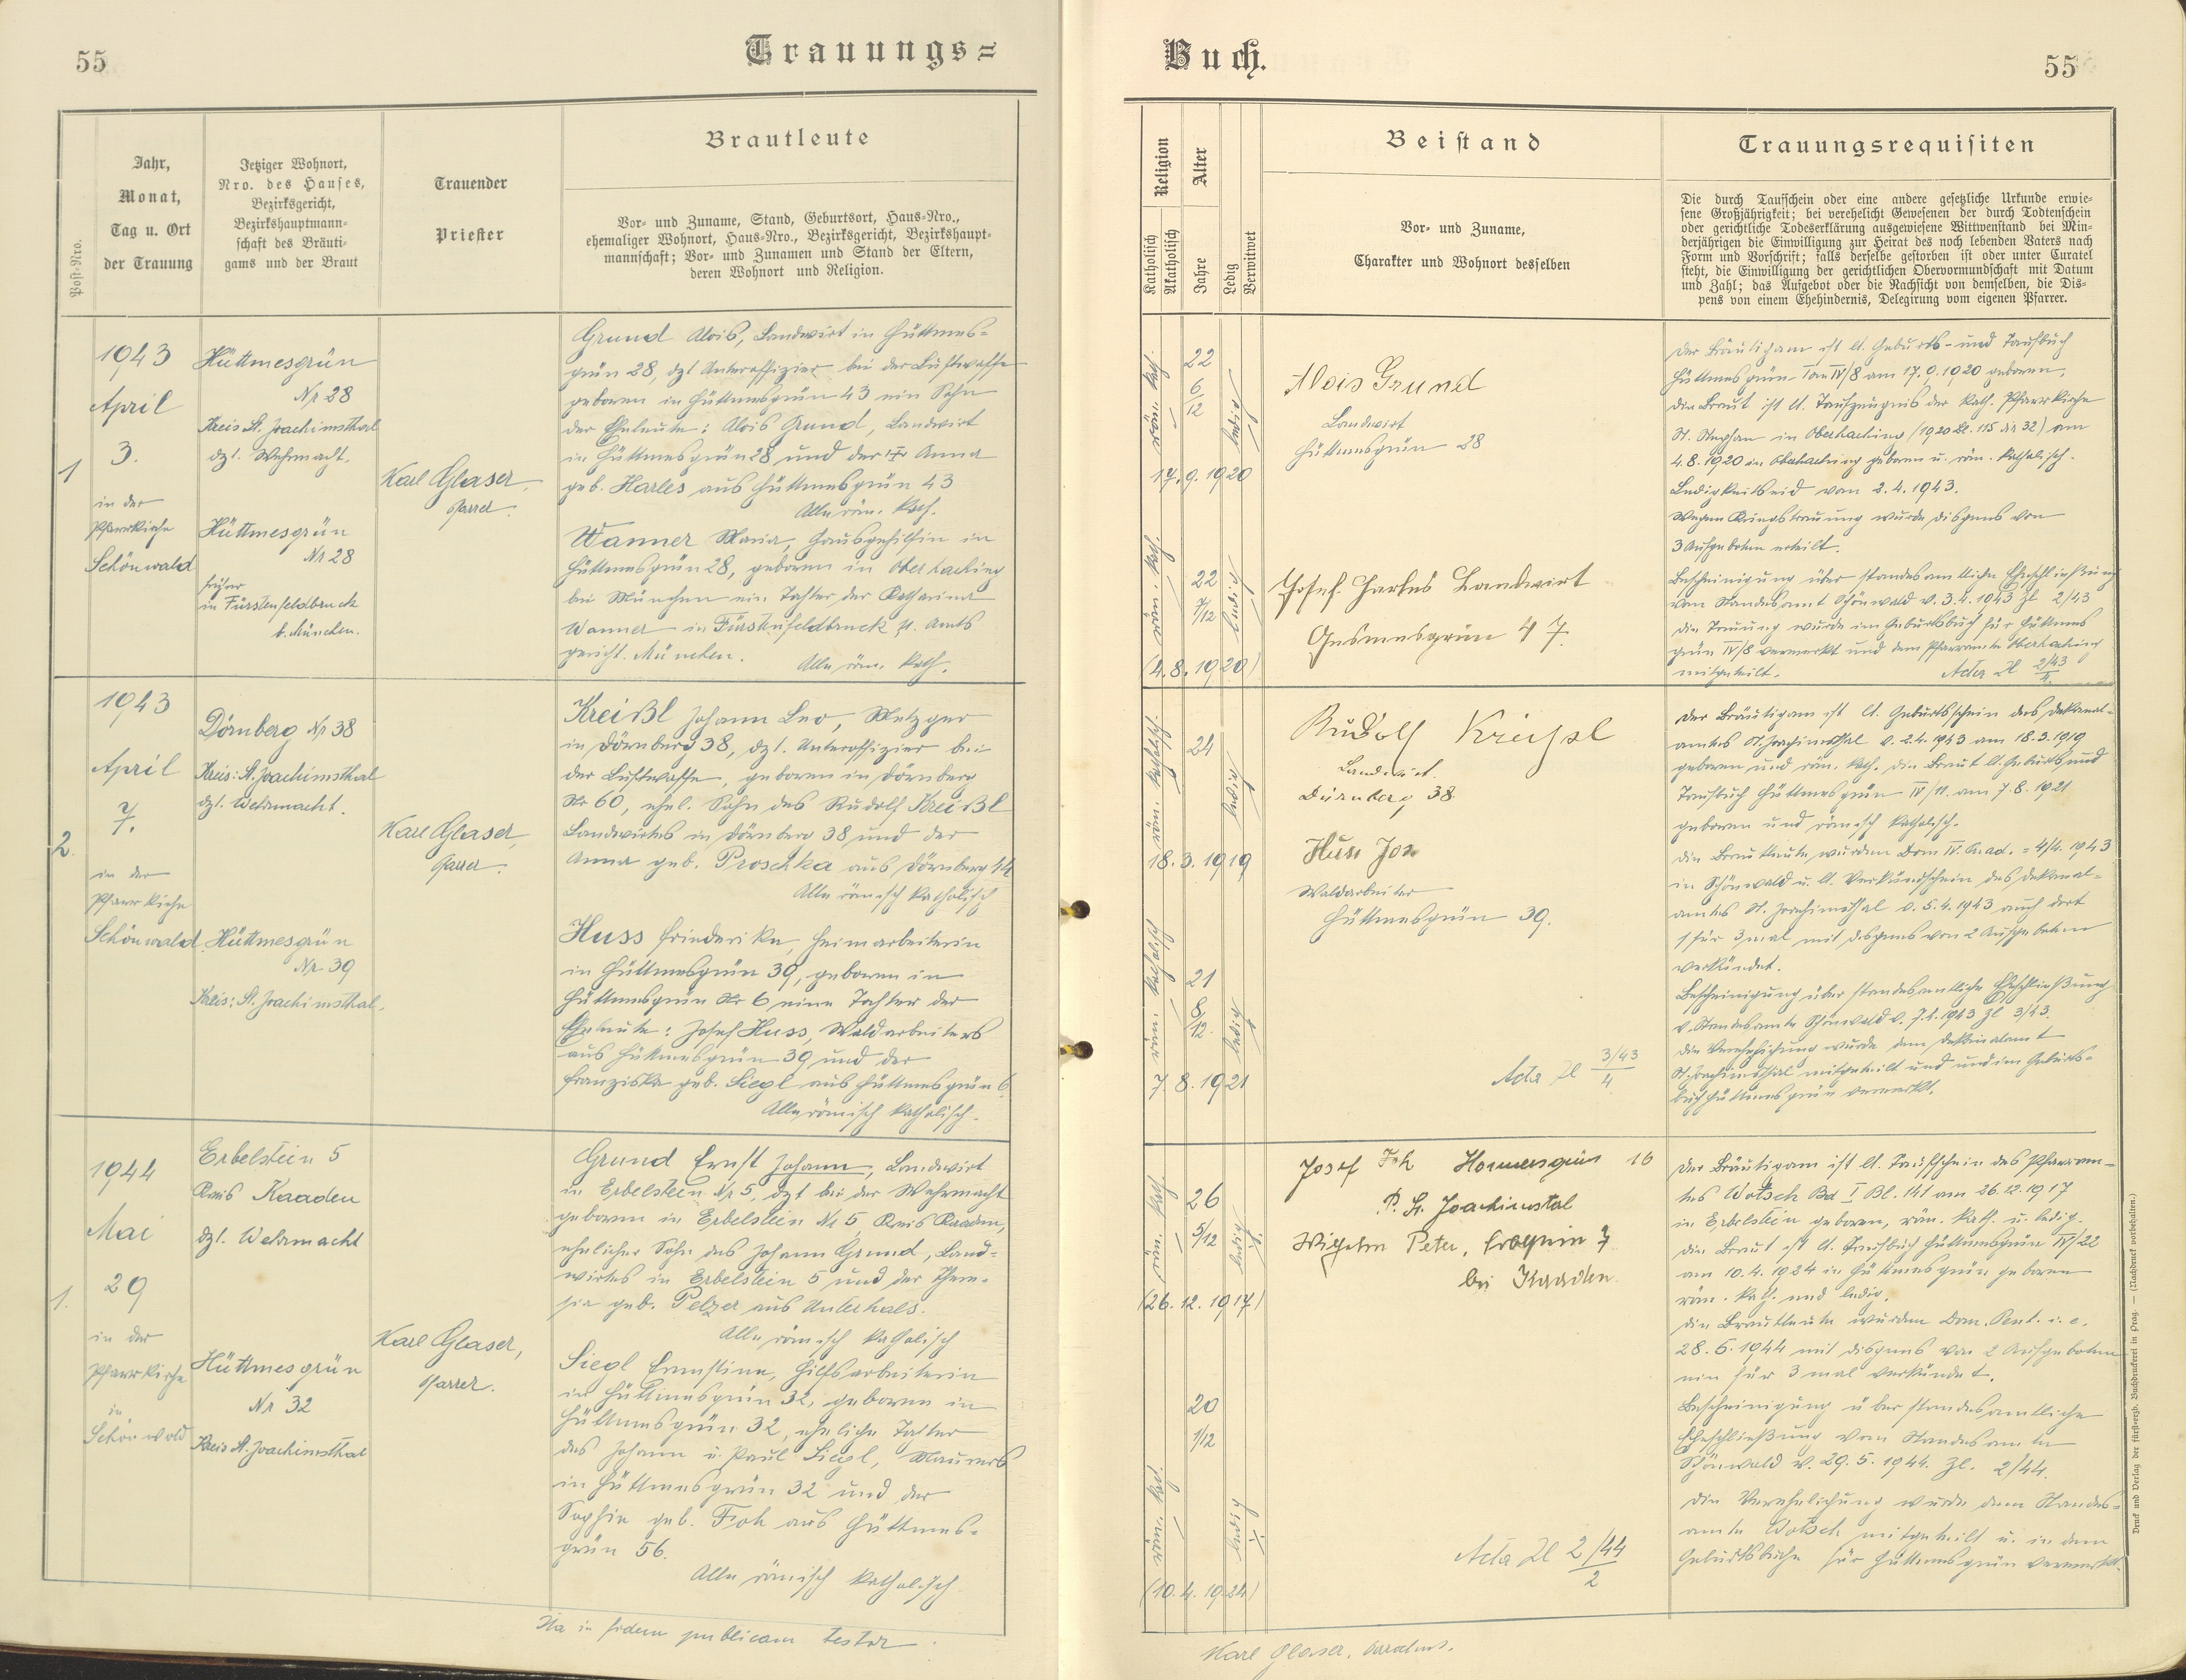 55
Trauungs=
Post-Nro.
Jahr,
Monat,
Tag u. Ort
der Trauung
Jetziger Wohnort,
Nro. des Hauses,
Bezirksgericht,
Bezirkshauptmann-
schaft des Bräuti-
gams und der Braut
Trauender
Priester
Brautleute
Vor- und Zuname, Stand, Geburtsort, Haus-Nro.,
ehemaliger Wohnort, Haus-Nro., Bezirksgericht, Bezirkshaupt-
mannschaft; Vor- und Zunamen und Stand der Eltern,
deren Wohnort und Religion.
1
1943
April
3.
in der
Pfarrkirche
Schönwald
Hüttmesgrün
Nr 28
Kreis St. Joachimsthal
dzt. Wehrmacht.
Hüttmesgrün
Nr 28
früher
in Fürstenfeldbruck
b. München.
Karl Glaser,
Pfarrer.
Grund Alois, Landwirt in Hüttmes-
grün 28, dzt Unteroffizier bei der Luftwaffe
geboren in Hüttmesgrün 43 ein Sohn
der Eheleute: Alois Grund, Landwirt
in Hüttmesgrün 28 und der Anna
geb. Harles aus Hüttmesgrün 43
Alle röm. kath.
Wanner Maria, Hausgehilfin in
Hüttmesgrün 28, geboren in Oberhaching
bei München ein Tochter der Katharina
Wanner in Fürstenfeldbruck Amts
gericht. München.
Alle röm. kath.
2.
1943
April
7.
in der
Pfarrkirche
Schönwald
Dörnberg Nr 38
Kreis: St. Joachimsthal
dzt. Wehrmacht.
Hüttmesgrün
Nr 39
Kreis: St. Joachimsthal.
Karl Glaser,
Pfarrer.
Kreißl Johann Leo, Metzger
in Dörnberg 38, dzt. Unteroffizier bei
der Luftwaffe, geboren in Dörnberg
Nr 60, ehel. Sohn des Rudolf Kreißl
Landwirtes in Dörnberg 38 und der
Anna geb. Proschka aus Dörnberg 44
Alle römisch katholisch
Huss Friederike, Heimarbeiterin
in Hüttmesgrün 39, geboren in
Hüttmesgrün Nr 6 eine Tochter der
Eheleute: Josef Huss, Waldarbeiters
aus Hüttmesgrün 39 und der
Franziska geb. Siegl aus Hüttmesgrün 6
Alle römisch katholisch.
1.
1944
Mai
29
in der
Pfarrkirche
in
Schönwald
Erbelstein 5
Kreis Kaaden
dzt. Wehrmacht
Hüttmesgrün
Nr 32
Kreis St. Joachimsthal
Karl Glaser,
Pfarrer.
Grund Ernst Johann, Landwirt
in Erbelstein Nr 5, dzt bei der Wehrmacht
geboren in Erbelstein Nr 5, Kreis Kaaden,
ehelicher Sohn des Johann Grund, Land-
wirtes in Erbelstein 5 und der There-
sia geb. Pelzer aus Unterhals.
Alle römisch katholisch
Siegl Ernestine, Hilfsarbeiterin
in Hüttmesgrün 32, geboren in
Hüttmesgrün 32, eheliche Tochter
des Johann u. Paul Siegl, Maurers
in Hüttmesgrün 32 und der
Sophie geb. Froh aus Hüttmes-
grün 56.
Alle römisch katholisch.
Ita in fidem publicam testor
Buch.
55
Religion
Katholisch
Akatholisch
Alter
Jahre
Ledig
Verwitwet
Beistand
Vor- und Zuname,
Charakter und Wohnort desselben
Trauungsrequisiten
Die durch Taufschein oder eine andere gesetzliche Urkunde erwie-
sene Großjährigkeit; bei verehelicht Gewesenen der durch Todtenschein
oder gerichtliche Todeserklärung ausgewiesene Wittwenstand bei Min-
derjährigen die Einwilligung zur Heirat des noch lebenden Vaters nach
Form und Vorschrift; falls derselbe gestorben ist oder unter Curatel
steht, die Einwilligung der gerichtlichen Obervormundschaft mit Datum
und Zahl; das Aufgebot oder die Nachsicht von demselben, die Dis-
pens von einem Ehehindernis, Delegirung vom eigenen Pfarrer.
röm. kath.
22
6/12
ledig
17.9.1920
röm. kath.
22
7/12
ledig
(4.8.1920)
Alois Grund
Landwirt
Hüttmesgrün 28
Josef Harles Landwirt
Gesmesgrün 47.
Der Bräutigam ist lt. Geburts- und Taufbuch
Hüttmesgrün IV/8 am 17.9.1920 geboren,
die Braut ist lt. Taufzeugnis der kath. Pfarrkirche
St. Stephan in Oberhaching (1920 Bl. 115 Nr 32) am
4.8.1920 in Oberhaching geboren u. röm. katholisch.
Ledigkeitseid vom 2.4.1943.
Wegen Kriegstrauung wurde Dispens von
3 Aufgeboten erteilt.
Bescheinigung über standesamtliche Eheschließung
vom Standesamt Schönwald v. 3.4.1943 Zl 2/43
Die Trauung wurde im Geburtsbuch für Hüttmes
grün IV/8 vermerkt und dem Pfarramte Oberhaching
mitgeteilt.
Acta Zl 2/43
röm. katholisch.
24
ledig
18.3.1919
röm. katholisch
21
8/12
ledig
7.8.1921
Rudolf Kreißl
Landwirt.
Dürnberg 38
Huss Jos
Waldarbeiter
Hüttmesgrün 39.
Acta Zl 3/43
4
Der Bräutigam ist lt. Geburtsschein des Dekanal-
amtes St. Joachimsthal v. 2.4.1943 am 18.3.1919
geboren und röm. kath. die Braut lt. Geburts und
Taufbuch Hüttmesgrün IV/11. am 7.8.1921
geboren und römisch katholisch.
Die Brautleute wurden Dom IV. Quad. = 4/4. 1943
in Schönwald u. lt. Verkündschein des Dekanal-
amtes St. Joachimsthal v. 5.4.1943 auch dort
1 für 3 mal mit Dispens von 2 Aufgeboten
verkündet.
Bescheinigung über standesamtliche Eheschließung
v. Standesamte Schönwald v. 7.4.1943 Zl 3/43.
Die Verehelichung wurde dem Dekanalamt
St. Joachimsthal mitgeteilt und und im Geburts-
buch Hüttmesgrün vermerkt.
röm. kath.
26
5/12
ledig
(26.12.1917)
20
1/12
röm. kath.
ledig
(10.4.1924)
Josef Hommersgrün 16
P. St. Joachimstal
Wilhelm Peter,
bei Kaaden.
Acta Zl 2/44
2
Der Bräutigam ist lt. Taufschein des Pfarram-
tes Wotsch Bd I Bl. 141 am 26.12.1917
in Erbelstein geboren, röm. kath. u. ledig.
Die Braut ist lt. Taufbuch Hüttmesgrün IV/22
am 10.4.1924 in Hüttmesgrün geboren
röm. kath. und ledig.
Die Brautleute wurden Dom. Pent. i. e.
28.5.1944 mit Dispens von 2 Aufgeboten
ein für 3 mal verkündet.
Bescheinigung über standesamtliche
Eheschließung vom Standesamte
Schönwald v. 29.5.1944. Zl. 2/44.
Die Verehelichung wurde dem Standes-
amte Wotsch mitgeteilt u. in dem
Geburtsbuche für Hüttmesgrün vermerkt.
Karl Glaser,
Druck und Verlag der fürst-erzb. Buchdruckerei in Prag. — (Nachdruck vorbehalten.)